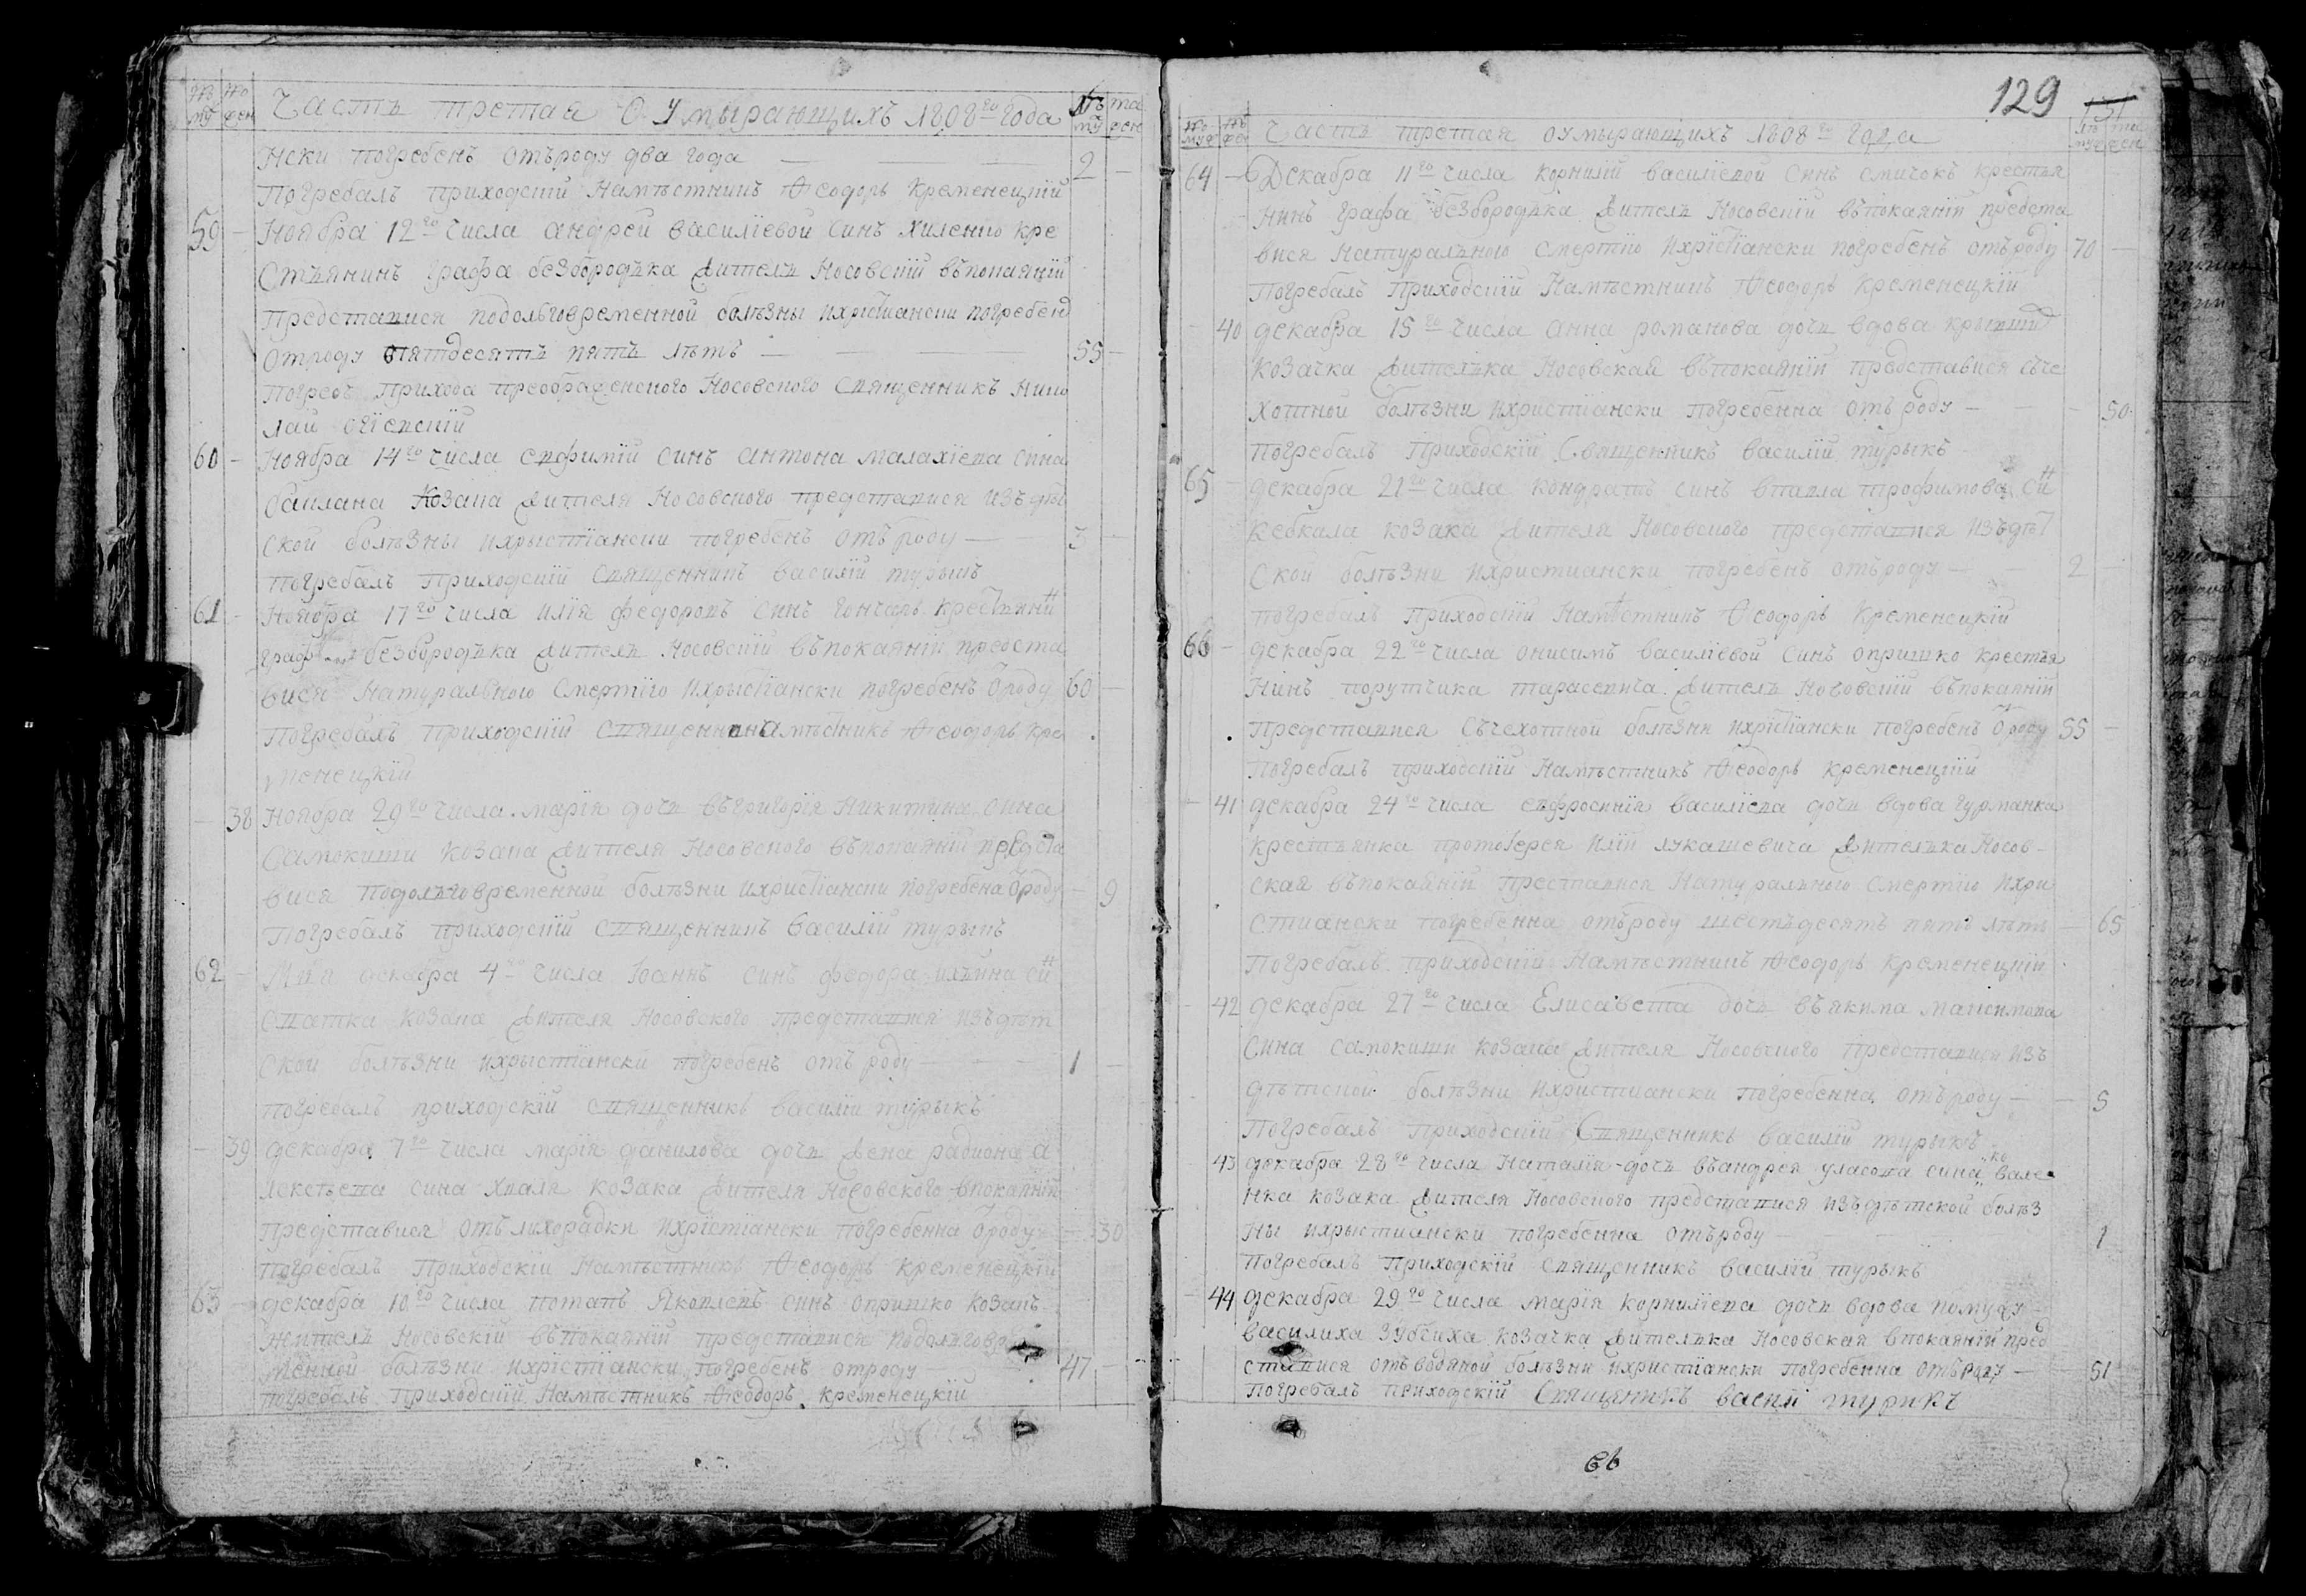 Часть третая О Умырающихъ 1808го года
нски погребенъ отъроду два года — 2 —
Погребалъ приходскій Намѣстникъ Феодоръ Кременецкій
59 — Ноября 12го числа андрей василіевой синъ хиленко кре
стьянинъ графа безбородька житель Носовскій въпокаяніи
Представися подольговременной болѣзны ихрістіански погребен
отроду пятдесятъ пять лѣтъ — 55 —
погребъ прихода преображенского Носовского священникъ Нико
лай
60 — Ноября 14го числа евфимій синъ антона малахіева сина
баклана козака жителя Носовского представися изъ дѣт
ской болѣзны ихрыстіански погребенъ отъ роду — 3 —
погребалъ приходскій священникъ василій турыкъ
61 — Ноября 17го числа илія федоровъ синъ гончаръ крестянин
граф безбородька житель Носовскій въпокаяніи предста
вися Натуральною смертію ихрыстіански погребенъ ѿроду 60 —
погребалъ приходскій священнинамѣстникъ Феодоръ кре
менецкій
— 38 Ноября 29го числа марія дочь въгригорія Никитина сина
самокиши козака жителя Носовского въпокаяніи предста
вися подольговременной болѣзни ихристіански погребена ѿроду — 9
Погребалъ приходскій священникъ василій турыкъ
62 — декабра 4го числа Іоаннъ синъ федора ильина си
спатка козака жителя Носовского представися изъдѣт
ской болѣзни ихрыстіански погребенъ отъ роду — 1 —
погребалъ приходскій священникъ василій турыкъ
— 39 декабра 7го числа марія данилова дочь жена радиона а
лексѣева сина хваля козака жителя Носовского впокаяніи
представися отъ лихорадки ихрістіански погребенна ѿроду — 30
погребалъ Приходскій Намѣстникъ Феодоръ кременецкій
63 — декабра 10го числа потапъ Яковлевъ синъ опришко козакъ
житель Носовскій въпокаяніи представися подольговре
менной болѣзни ихрістіански погребенъ отроду 47 —
погребалъ Приходскій Намѣстникъ Феодоръ кременецкій
129
131
Часть третая оумырающихъ 1808го года
64 — Декабра 11го числа корнилій василіевой синъ смичокъ крестья
нинъ графа безбородька житель Носовскій въпокаяніи предста
вися натуральною смертію ихрістіански погребенъ отъроду 70 —
Погребалъ Приходскій Намѣстникъ Феодоръ Кременецкій
— 40 декабра 15го числа анна романова дочь вдова
козачка жителька Носовская въпокаяніи представися съче
хотной болѣзни ихристіански погребенна отъ роду — — 50
погребалъ Приходскій Священникъ василій турыкъ
65 — декабра 21го числа кондратъ синъ впавла трофимова си
кебкала козака жителя Носовского представися изъдѣт
ской болѣзни ихристиански погребенъ отъроду — 2 —
погребалъ Приходскій Намѣстникъ Феодоръ Кременецкій
66 — декабра 22го числа онисимъ василіевой синъ опришко крестья
нинъ порутчика тарасевича житель Носовскій въпокаяніи
Представися съчехотной болѣзни ихрістіански погребенъ ѿроду 55 —
Погребалъ приходскій Намѣстникъ Феодоръ Кременецкій
— 41 декабра 24го числа евфросинія василіева дочь вдова гурманка
крестьянка протоіерея иліи лукашевича жителька Носов-
ская въпокаяніи преставися Натуральною смертію ихри
стиански погребенна отъроду шестьдесятъ пять лѣтъ — 65
Погребалъ приходскій Намѣстникъ Феодоръ Кременецкій
— 42 декабра 27го числа Елисавета дочь въякима максимова
сина самокиши козака жителя Носовского представися изъ
дѣтской болѣзни ихристиански погребенна отъроду — — 5
Погребалъ Приходскій Священникъ василій турыкъ
43 декабра 28го числа Наталія дочь въандрея уласова сина вале
нка козака жителя Носовского представися изъдѣтской болѣз
ны ихрыстиански погребенна отъроду — 1
погребалъ Приходскій священникъ василій турыкъ
— 44 декабра 29го числа марія корниліева дочь вдова помужу
василиха зубчиха козачка жителька Носовская впокаяніи пред
ставися отъводяной болѣзни ихристіански погребенна отъроду — 51
Погребалъ приходскій Священикъ васнлі турикъ